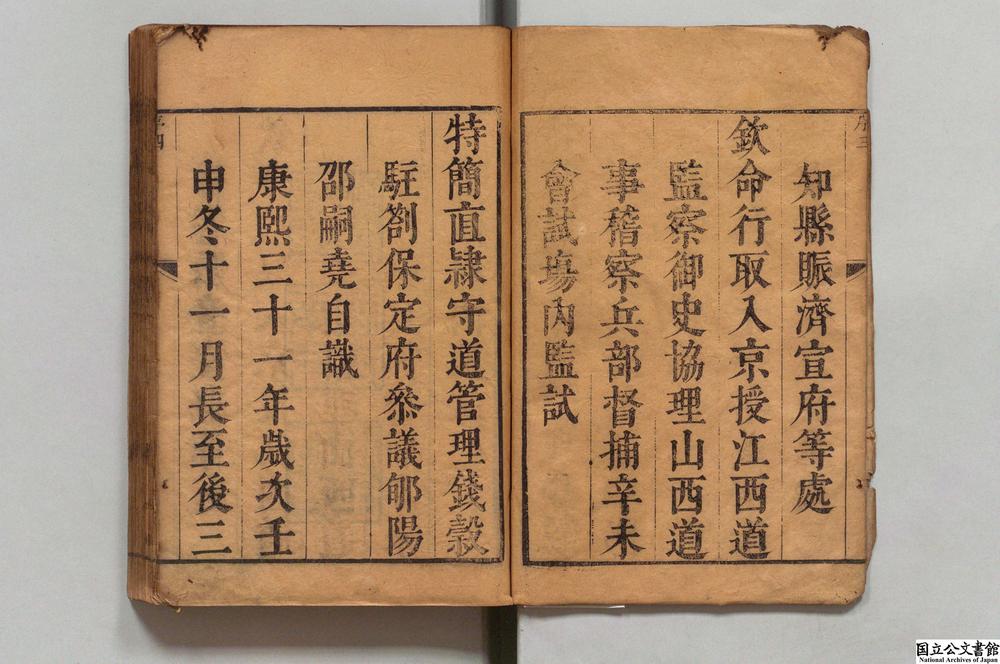 序三
知縣賑濟宣府等處
欽命行取入京授江西道
監察御史協理山西道
事稽察兵部督捕辛未
會試塲內監試
特簡直隷守道管理錢穀
駐劄保定府叅議郇陽
邵嗣堯自識
康熙三十一年歲次壬
申冬十一月長至後三
序四
国立公文書館
National Archives of Japan